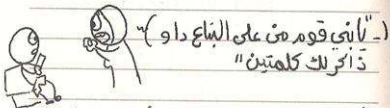 ١- "يا بني قوم من على البتاع دا و
ذاكر لك كلمتين"